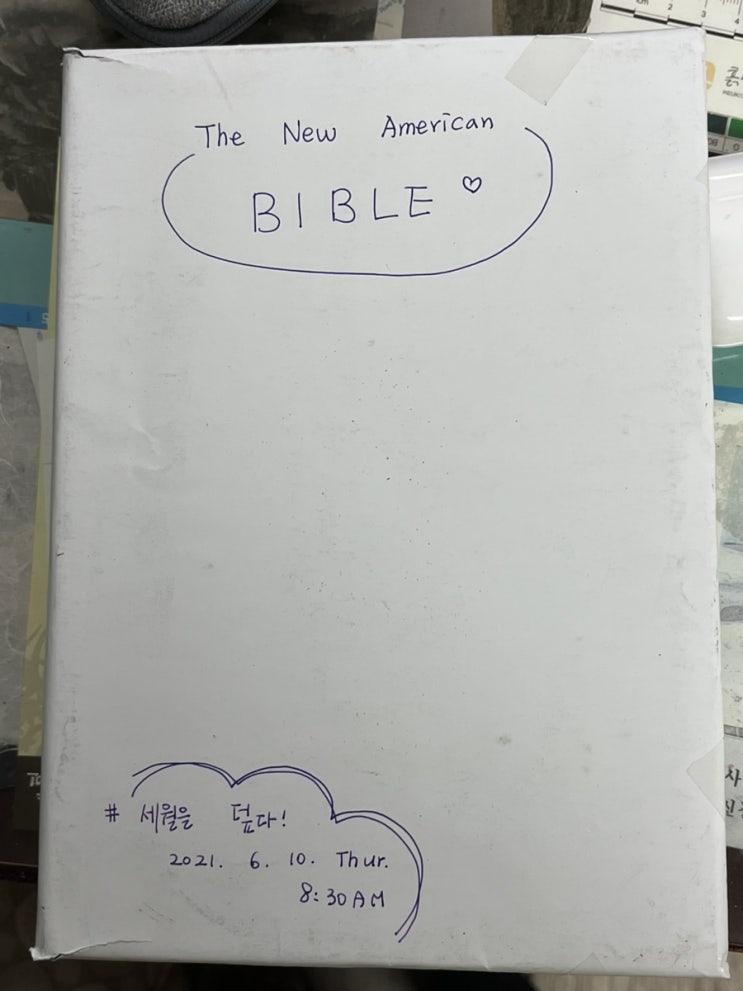 The New American
BIBLE ♡
# 세월을 덮다!
2021. 6. 10. Thur.
8:30AM